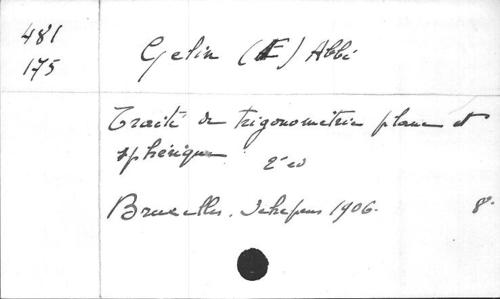 481
175
Gelin (E) Abbé
Traité de trigonométrie plane et
sphérique 2e ed
Bruxelles. Schepens 1906. 8°